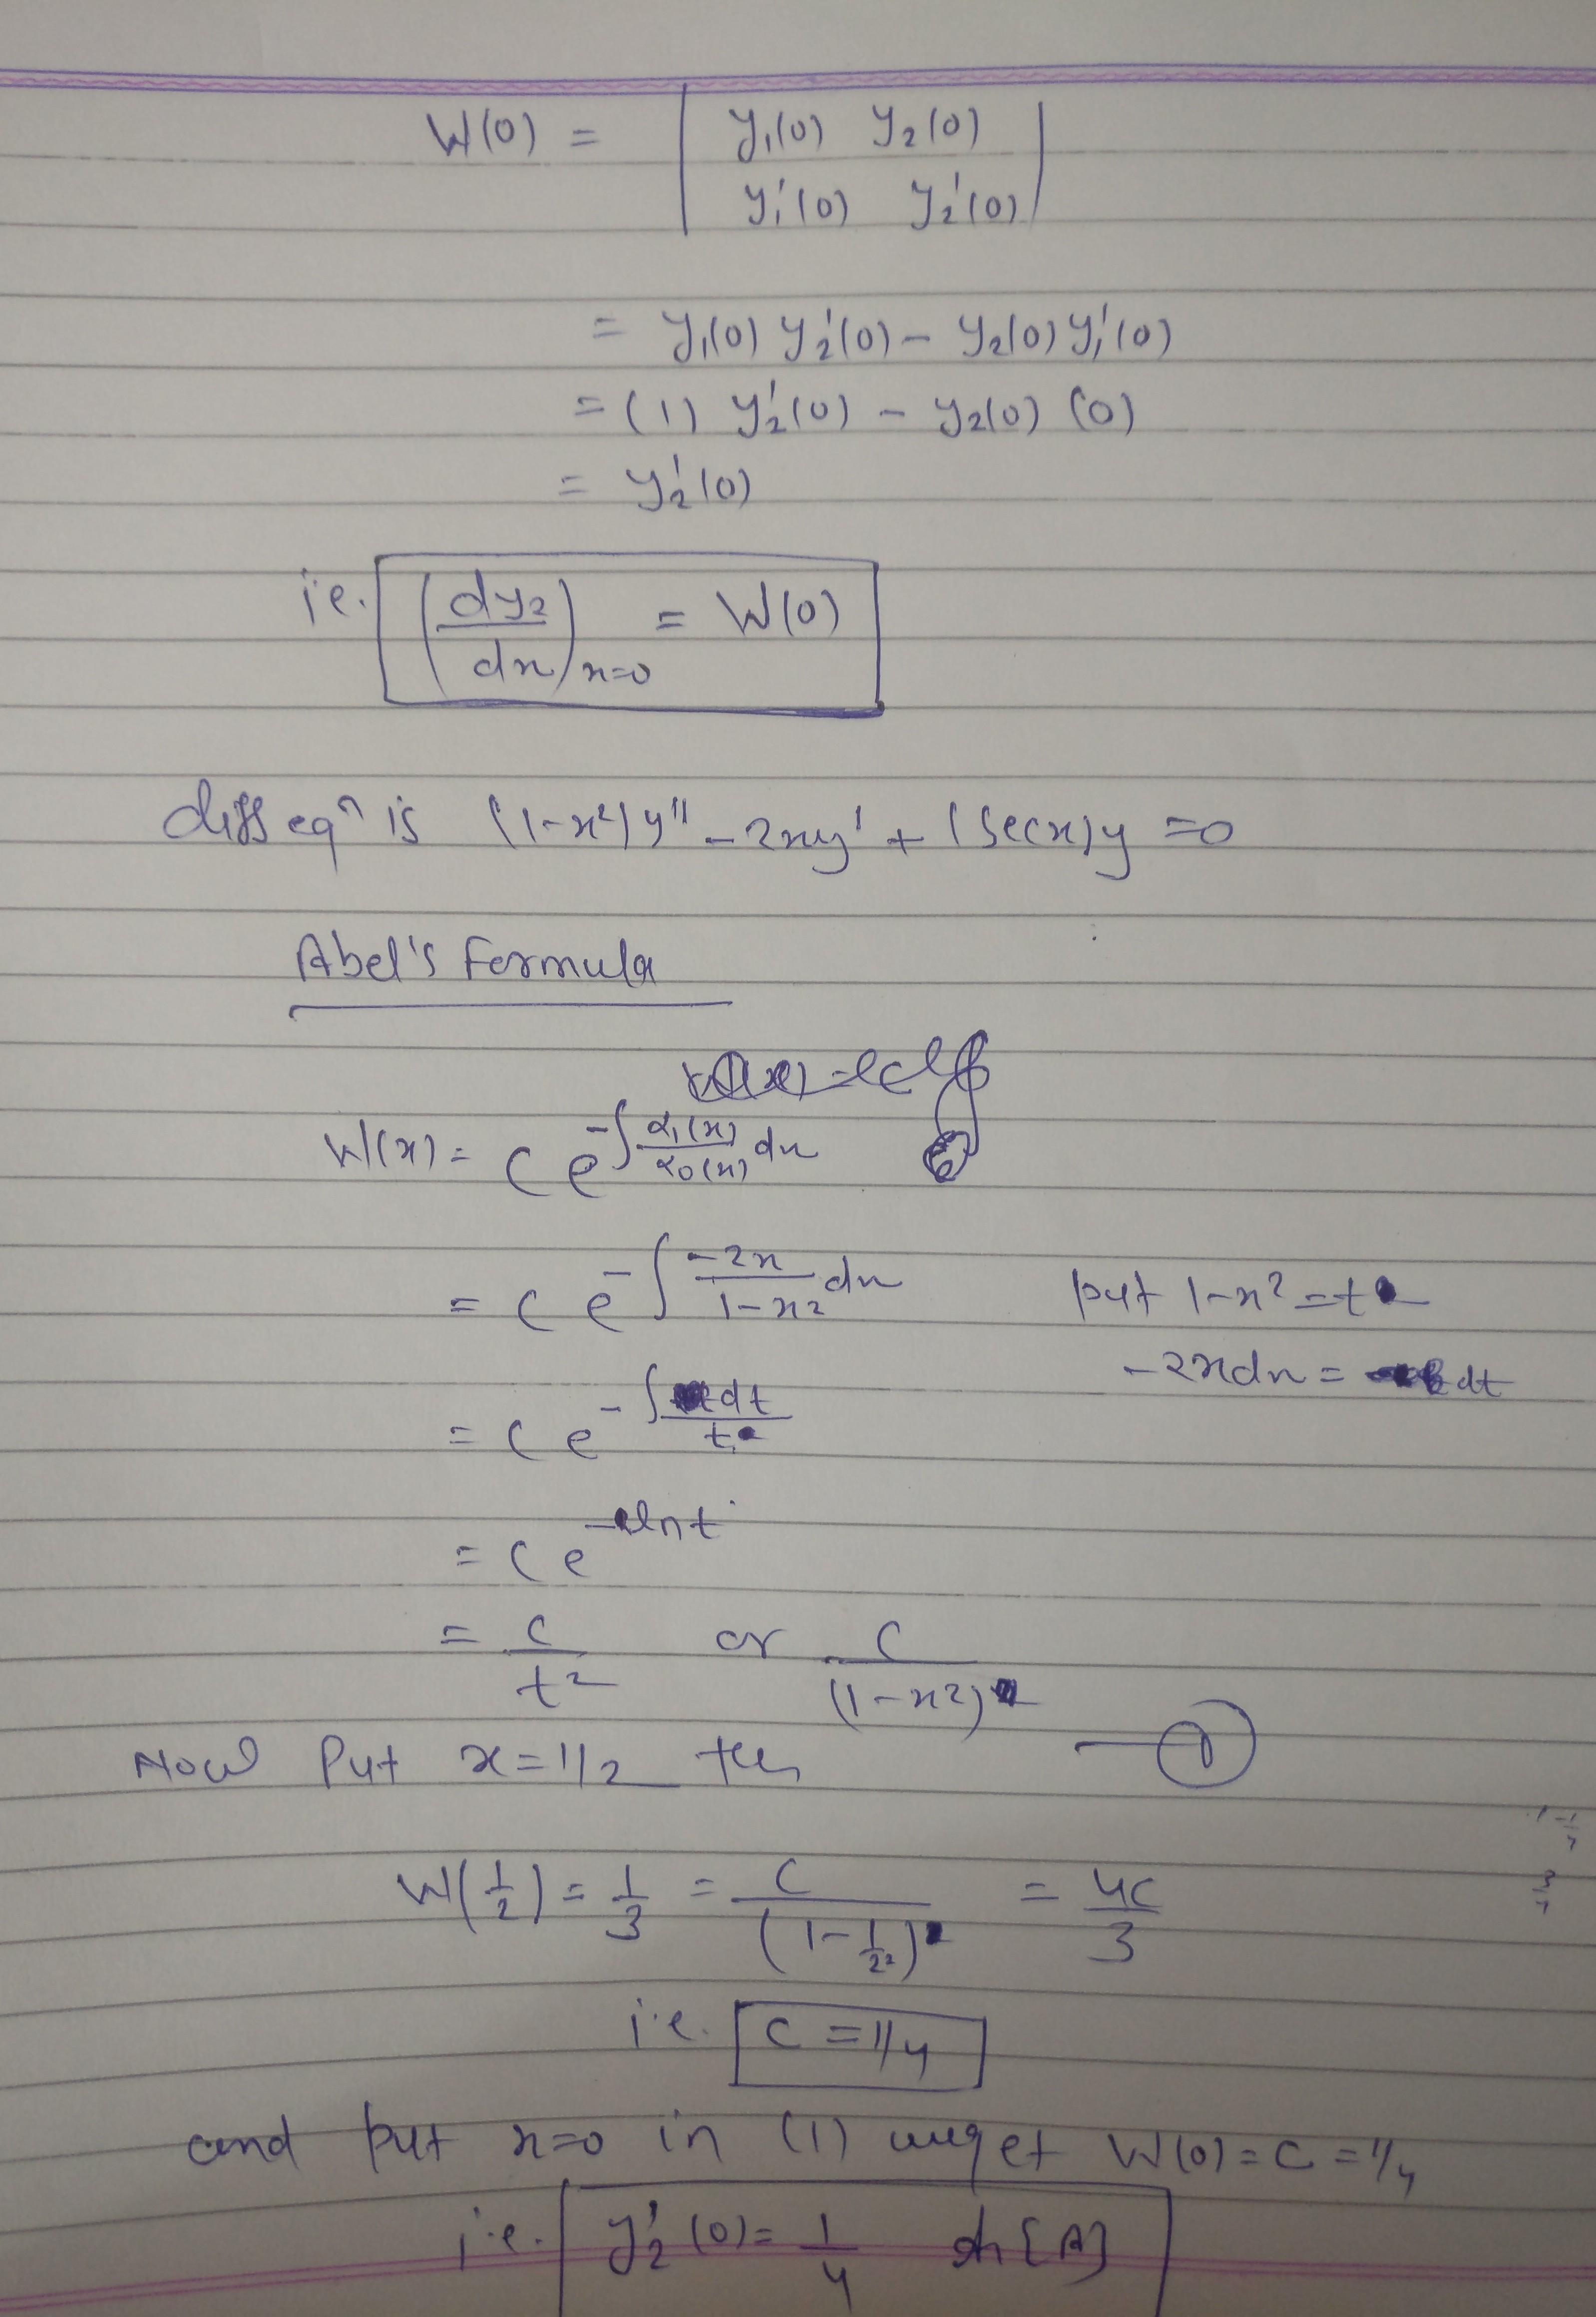 W(0) = | y₁(0) y₂(0) |
| y₁'(0) y₂'(0) |
= y₁(0) y₂'(0) - y₂(0) y₁'(0)
= (1) y₂'(0) - y₂(0) (0)
= y₂'(0)
i.e. (dy₂/dx)ₓ₌₀ = W(0)
diff eqⁿ is (1-x²)y'' - 2xy' + (secx)y = 0
Abel's Formula
W(x) = C e^{-∫ α₁(x)/α₀(x) dx}
= C e^{-∫ -2x/(1-x²) dx} put 1-x² = t
-2xdx = dt
= C e^{-∫ dt/t}
= C e^{-lnt}
= C/t² or C/(1-x²) — (1)
Now Put x = 1/2 then
W(1/2) = 1/3 = C/(1-1/2²) = 4C/3
i.e. C = 1/4
and put x=0 in (1) we get W(0) = C = 1/4
i.e. y₂'(0) = 1/4 [A]